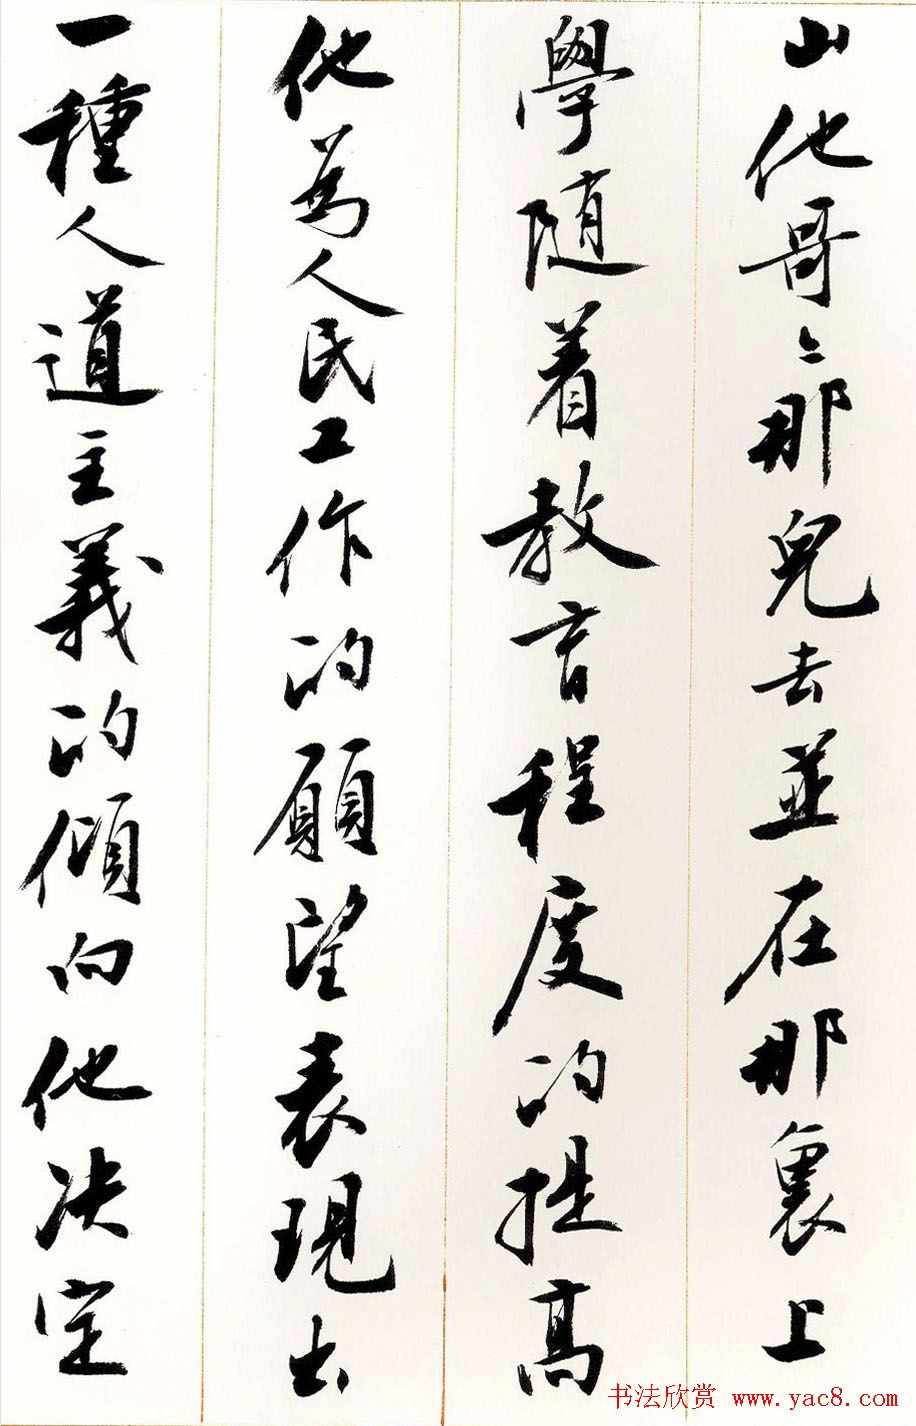 山他哥〻那兒去並在那裏上
學随着教育程度的提高
他為人民工作的願望表現出
一種人道主義的傾向他决定
书法欣赏 www.yac8.com